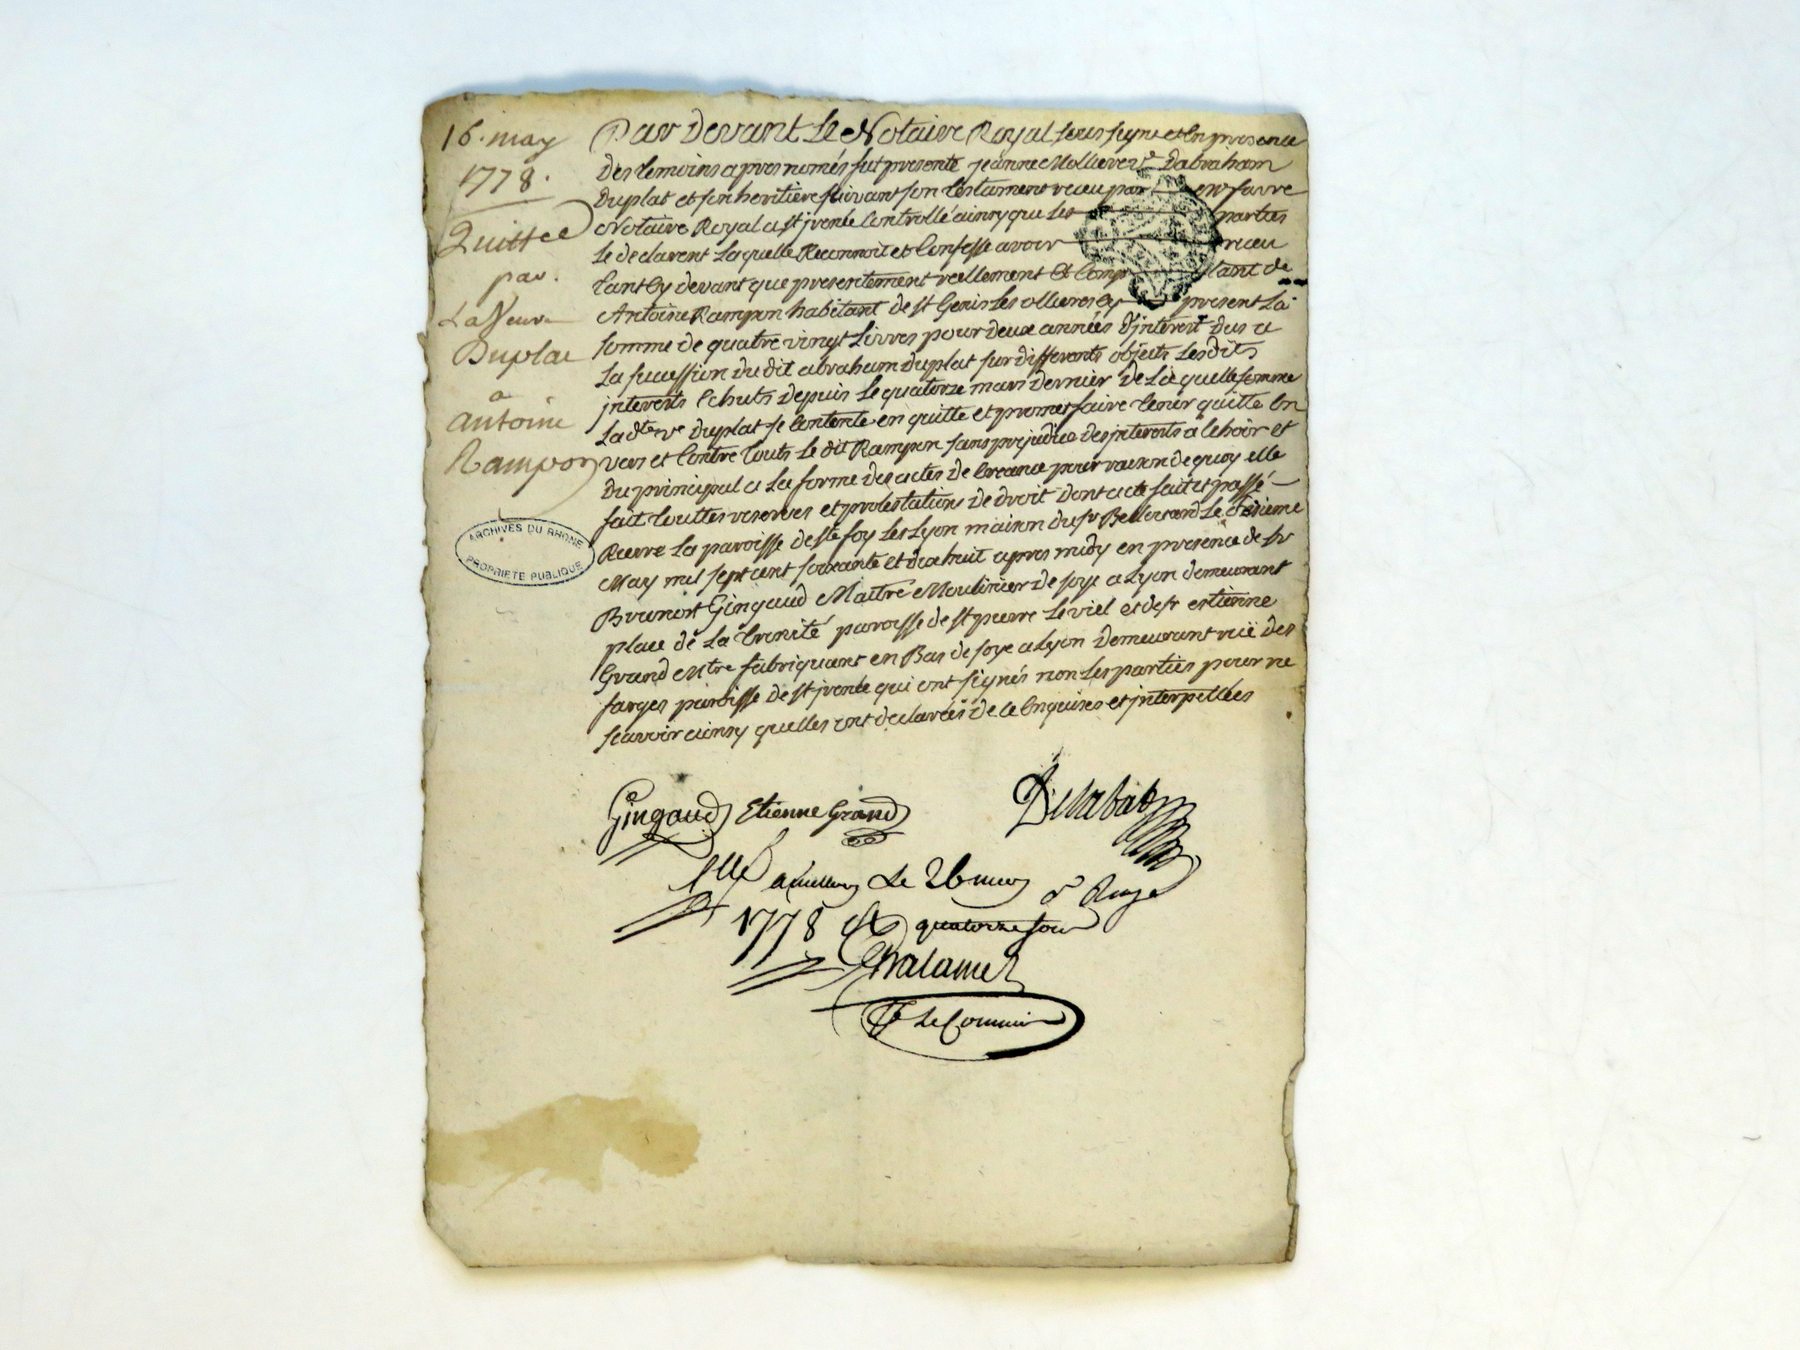 16. may
1778.
Quittce
par.
La Veuve
Duplat
a
antoine
Rampon
ARCHIVES DU RHONE
PROPRIETE PUBLIQUE
Par Devant Le Notaire Royal sous signé et En presence
Des temoins apres només fut presente jeanne Mollieve ve Dabraham
Duplat et son heritiere suivant son testament receu par favre
Notaire Royal a st jrenée Controllé ainsy que Les parties
Le declarent Laquelle Reconnoit et Confesse avoir receu
tant Cy devant que presentement reellement Et Comptant de
Antoine Rampon habitant de st Genis Les ollieres Cy present La
somme de quatre vingt Livres pour Deux années D'interest Dus a
La succession Dudit abraham Duplat sur differents objects Lesdits
jnterests Echuts Depuis Le quatorze mars Dernier De Laquelle somme
La dte ve Duplat se Contente en quitte et promet faire tenir quitte En
vers et Contre touts Le dit Rampon sans prejudice Des jnterests a Echoir et
Du principal a La forme des actes de Creance pour raison de quoy elle
fait touttes reserves et protestations De droit Dont acte fait et passé
Riere La paroisse de ste foy Les Lyon maison du sr Le seizieme
May mil sept cent soixante et dix huit apres midy en presence de sr
Gingaud Maitre Moulinier De soye a Lyon demeurant
place de La trinité paroisse de st pierre Le viel et de sr estienne
Grand Mtre fabriquant en Bas de soye a Lyon Demeurant rüe des
farges paroisse De st jrenée qui ont signés non Les parties pour ne
sçavoir ainsy quelles ont declarées de ce Enquises et jnterpellées
Gingaud Etienne Grand
Le 26 may
1778 quatorze sous
Le Commis